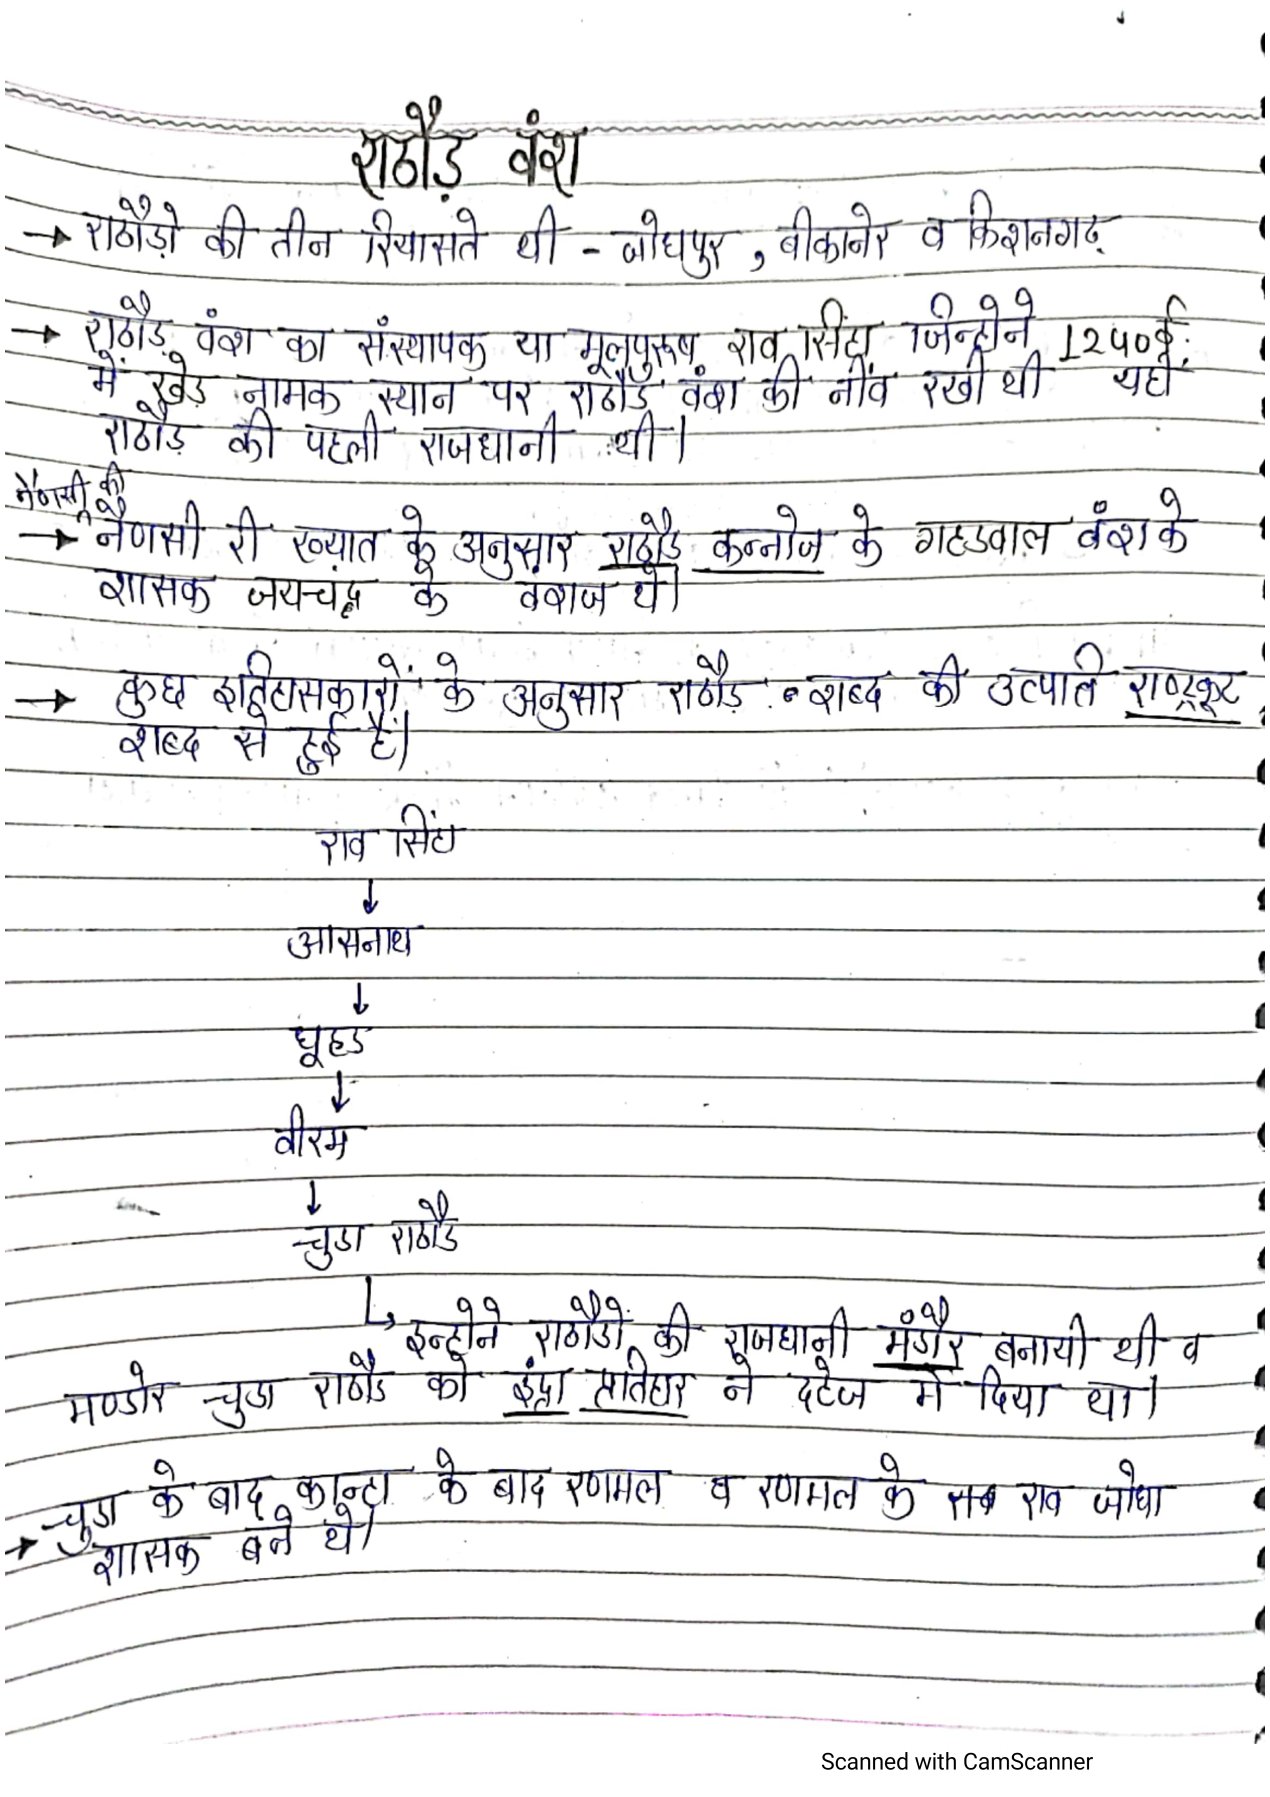 राठौड़ वंश
→ राठौड़ो की तीन रियासते थी - जोधपुर, बीकानेर व किशनगढ़
→ राठौड़ वंश का संस्थापक या मूलपुरूष राव सिंहा जिन्होने 1240ई.
में खेड़ नामक स्थान पर राठौड वंश की नींव रखी थी यही
राठौड़ की पहली राजधानी थी।
नैणसी की
→ नैणसी री ख्यात के अनुसार राठौड़ कन्नोज के गहडवाल वंश के
शासक जयचंद्र के वंशज थे।
→ कुछ इतिहासकारों के अनुसार राठौड़ शब्द की उत्पति राष्ट्रकूट
शब्द से हुई है।
राव सिंहा
↓
आसनाथ
↓
धूहड
↓
वीरम
↓
चुडा राठौड
↳ इन्होने राठौडों की राजधानी मंडौर बनायी थी व
मण्डोर चुडा राठौड को इंद्रा प्रतिहार ने दहेज में दिया था।
→ चुडा के बाद कान्हा के बाद रणमल व रणमल के बाद राव जोधा
शासक बने थे।
Scanned with CamScanner